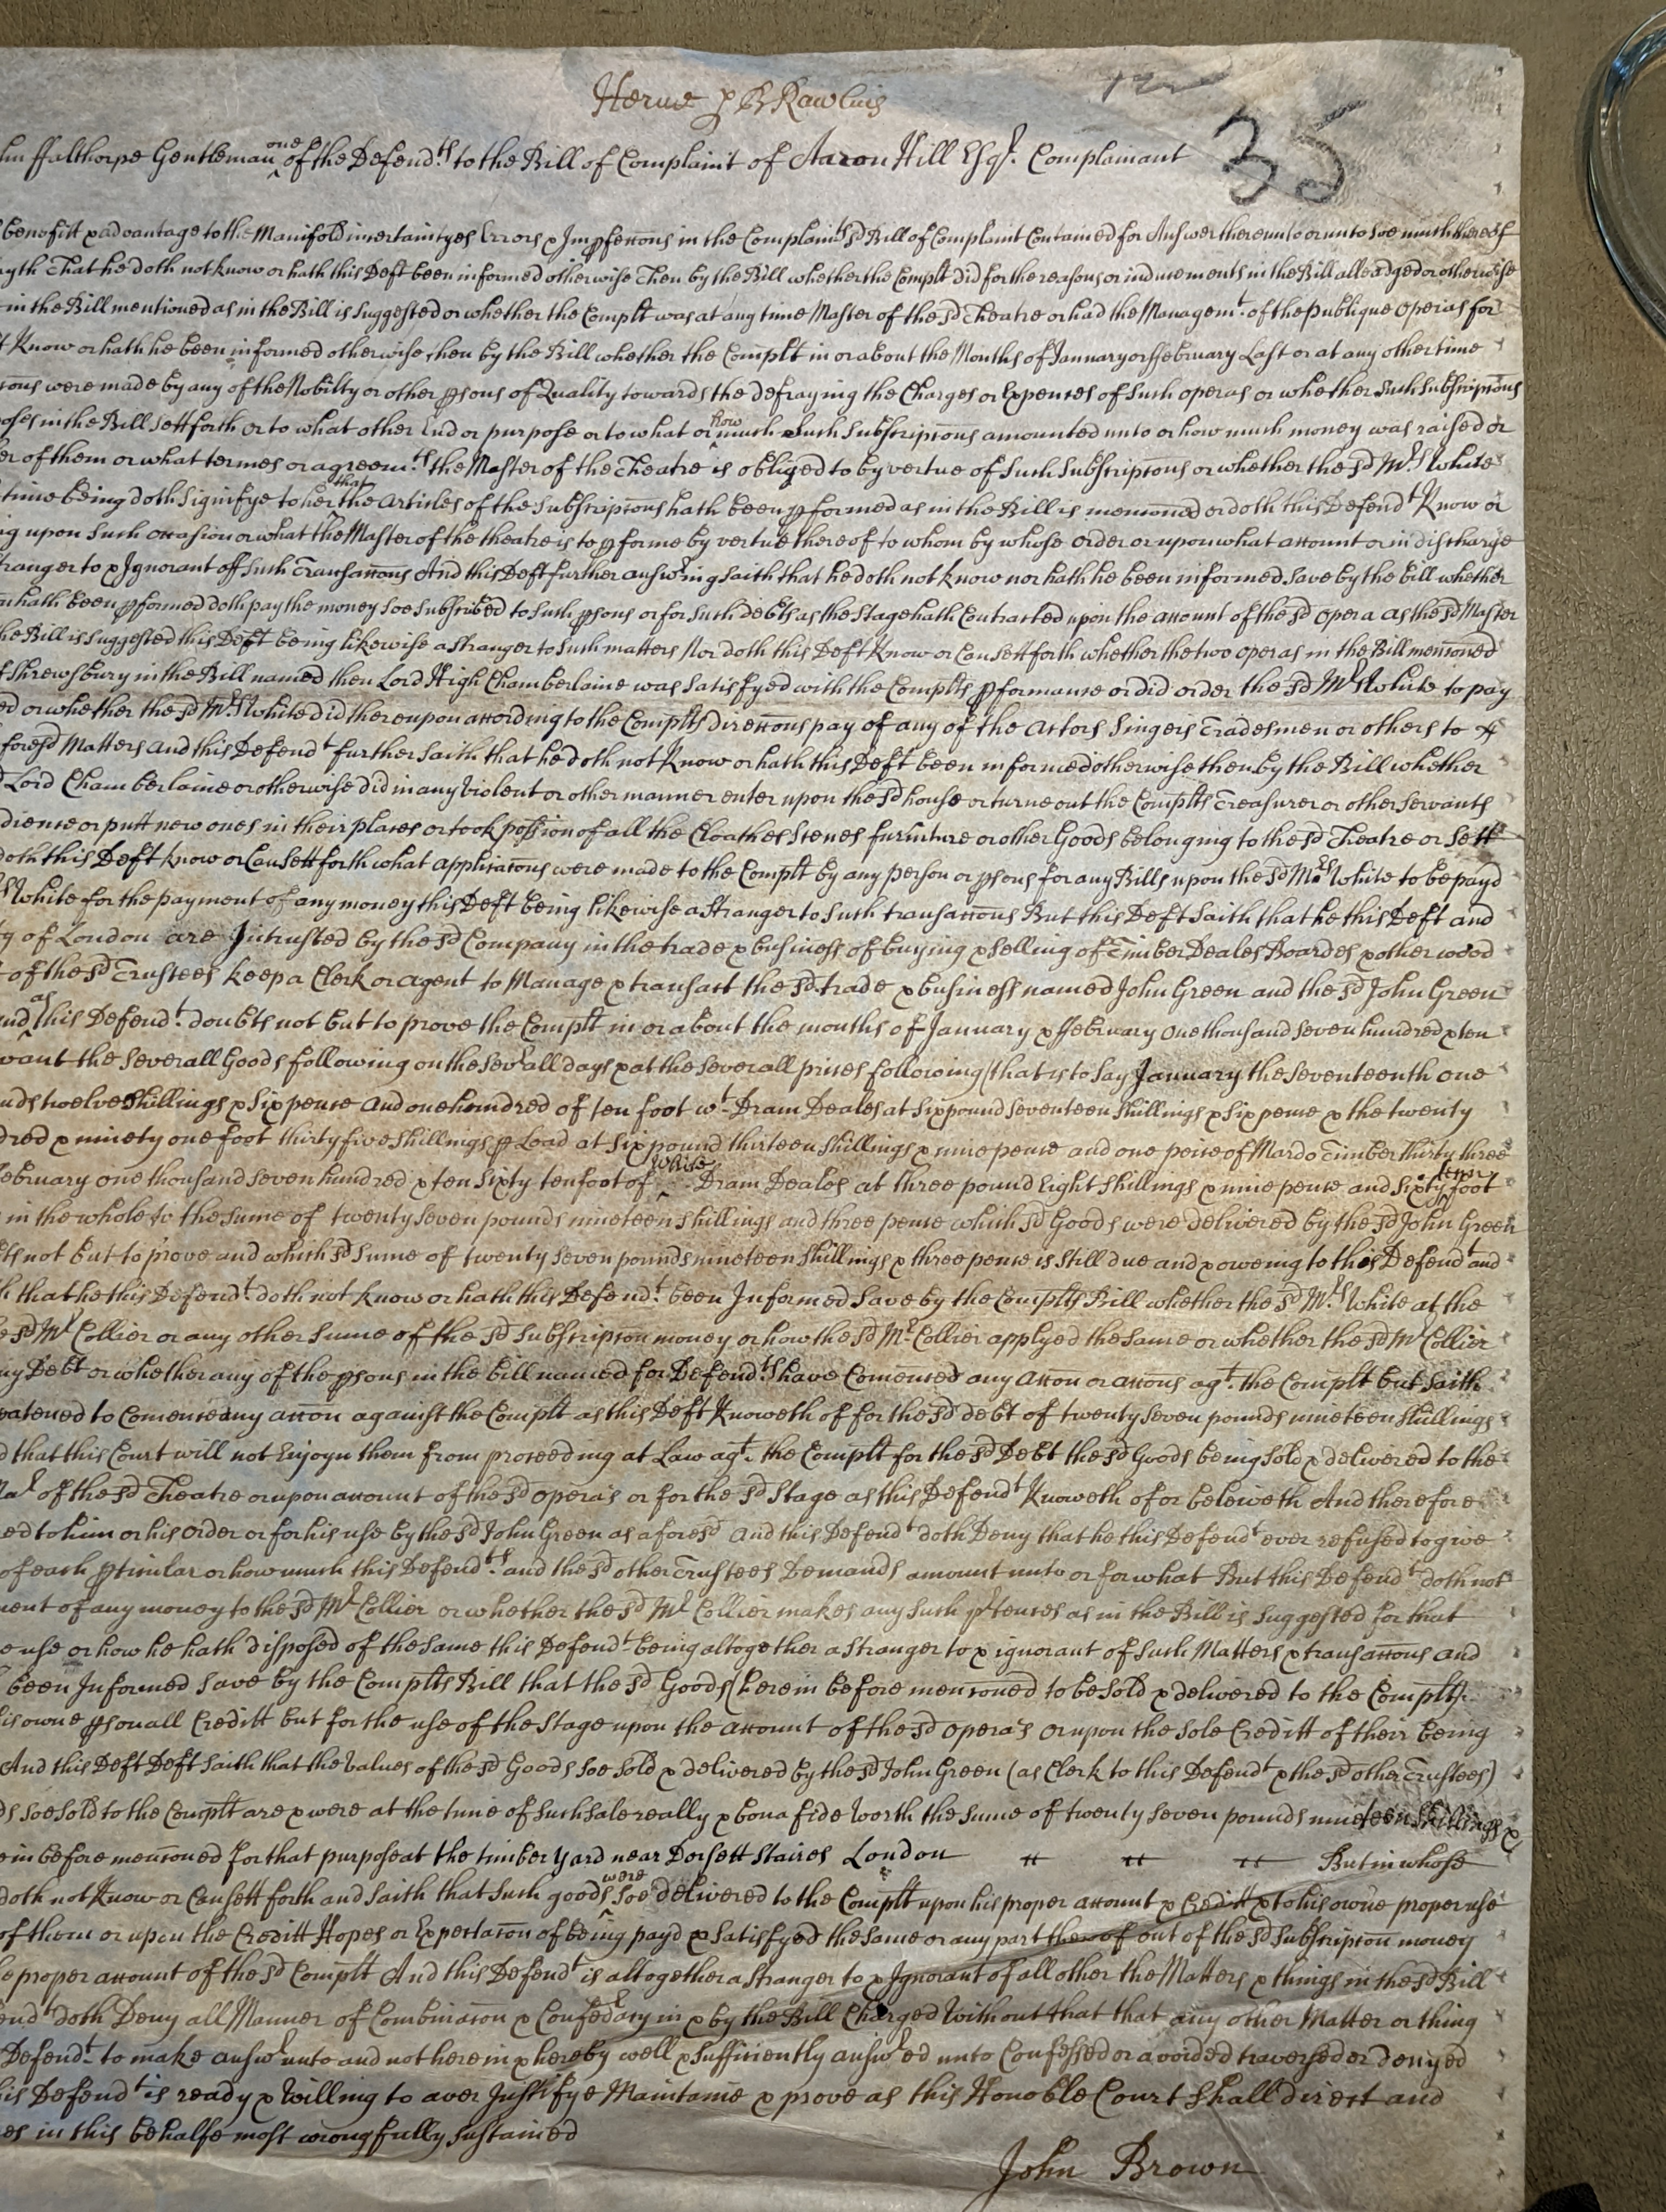 Herne p B Rawlins
35
hn ffalthorpe Gentleman one of the Defend.ts to the Bill of Complaint of Aaron Hill Esqr. Complainant
benefitt & advantage to the Manifold incertaintyes Errors & Imp̱fecc̄ons in the Complain.ts sd Bill of Complaint Contained for Answer thereunto or unto soe much thereof
yth That he doth not know or hath this Deft been informed otherwise then by the Bill whether the Complt did for the reasons or inducements in the Bill alleadged or otherwise
in the Bill mentioned as in the Bill is suggested or whether the Complt was at any time Master of the sd Theatre or had the Managem.t of the publique Operas for
t Know or hath he been informed otherwise then by the Bill whether the Complt in or about the Months of January or ffebruary Last or at any other time
c̄ons were made by any of the Nobilty or other p̱sons of Quality towards the defraying the Charges or Expences of such operas or whether such Subscripc̄ons
poses in the Bill sett forth or to what other End or purpose or to what or how much such Subscripc̄ons amounted unto or how much money was raised or
er of them or what termes or agreem.ts the Master of the Theatre is obliged to by vertue of such Subscripc̄ons or whether the sd Mrs. White
time being doth signifye to her that the Articles of the Subscripc̄ons hath been p̱formed as in the Bill is menc̄oned or doth this Defend.t Know or
ng upon such occasion or what the Master of the theatre is to p̱forme by vertue thereof to whom by whose order or upon what account or in discharge
ranger to & Ignorant off such Transacc̄ons And this Deft further answ.ring saith that he doth not know nor hath he been informed save by the bill whether
n hath been p̱formed doth pay the money soe subscribed to such p̱sons or for such debts as the Stage hath Contracted upon the account of the sd Opera as the sd Master
he Bill is suggested this Deft being likewise a stranger to such matters Nor doth this Deft Know or Can sett forth whether the two operas in the Bill menc̄oned
f Shrewsbury in the Bill named then Lord High Chamberlaine was satisfyed with the Complts p̱formance or did order the sd Mrs White to pay
ed or whether the sd Mrs White did thereupon according to the Complts direcc̄ons pay of any of the Actors Singers Tradesmen or others to
foresd Matters And this Defend.t further saith that he doth not Know or hath this Deft been informed otherwise then by the Bill whether
d Lord Chamberlaine or otherwise did in any violent or other manner enter upon the sd house or turne out the Complts Treasurer or other servants
dience or putt new ones in their places or took possion of all the Cloathes Scenes furniture or other Goods belonging to the sd Theatre or sett
doth this Deft know or Can sett forth what applicac̄ons were made to the Complt by any person or p̱sons for any Bills upon the sd Mrs White to be payd
rs White for the payment of any money this Deft being likewise a stranger to such transacc̄ons But this Deft saith that he this Deft and
y of London are Intrusted by the sd Company in the trade & business of buying & selling of Timber Deales Boardes & other wood
t of the sd Trustees keep a Clerk or agent to Manage & transact the sd trade & business named John Green and the sd John Green
and as this Defend.t doubts not but to prove the Complt in or about the months of January & ffebruary One thousand seven hundred & ten
vant the severall Goods following on the sev.rall days & at the severall prices following (that is to say January the seventeenth one
nds twelve shillings & six pence and one hundred of ten foot w.t Dram Deales at six pound seventeen shillings & six pence & the twenty
dred & ninety one foot thirty five shillings p̱ Load at six pound thirteen shillings & nine pence and one peice of Mardo Timber thirty three
ebruary one thousand seven hundred & ten sixty ten foot of white Dram Deales at three pound Eight shillings & nine pence and sixty tenn foot
in the whole to the sume of twenty seven pounds nineteen shillings and three pence which sd Goods were delivered by the sd John Green
bts not but to prove and which sd sume of twenty seven pounds nineteen shillings & three pence is still due and & oweing to this Defend.t and
h that he this Defend.t doth not know or hath this Defend.t been Informed save by the Complts Bill whether the sd Mrs. White at the
e sd Mr Collier or any other sume of the sd subscripc̄on money or how the sd Mr Collier applyed the same or whether the sd Mr Collier
ny Debt or whether any of the p̱sons in the bill named for Defend.ts have Com̄enced any acc̄on or acc̄ons ag.t the Complt but saith
eatened to Com̄ence any acc̄on against the Complt as this Deft Knoweth of for the sd debt of twenty seven pounds nineteen shillings
d that this Court will not Enjoyn them from proceeding at Law ag.t the Complt for the sd Debt the sd Goods being sold & delivered to the
of the sd Theatre or upon account of the sd opera's or for the sd Stage as this Defend.t Knoweth of or beleiveth And therefore
ed to him or his order or for his use by the sd John Green as aforesd And this Defend.t doth Deny that he this Defend.t ever refused to give
of each p̱ticular or how much this Defend.ts and the sd other Trustees Demands amount unto or for what But this Defend.t doth not
ment of any money to the sd Mr Collier or whether the sd Mr Collier makes any such p.rtences as in the Bill is suggested for that
e use or how he hath disposed of the same this Defend.t being altogether a stranger to & ignorant of such Matters & transacc̄ons and
been Informed save by the Complts Bill that the sd Goods (herein before menc̄oned to be sold & delivered to the Complt)
is owne p̱sonall Creditt but for the use of the Stage upon the account of the sd opera's or upon the sole Creditt of their being
And this Deft Deft saith that the values of the sd Goods soe sold & delivered by the sd John Green (as Clerk to this Defend.t & the sd other Trustees)
ds soe sold to the Complt are & were at the time of such sale really & bona fide worth the sume of twenty seven pounds nineteen shillings &
ein before menc̄oned for that purpose at the timber yard near Dorsett Staires London But in whose
doth not Know or Can sett forth and saith that such goods were soe delivered to the Complt upon his proper account & Creditt & to his owne proper use
of them or upon the Creditt Hopes or Expectac̄on of being payd & satisfyed the same or any part thereof out of the sd subscripc̄on money
e proper account of the sd Complt And this Defend.t is altogether a stranger to & Ignorant of all other the Matters & things in the sd Bill
end.t doth Deny all Manner of Combinac̄on & Confed.racy in & by the Bill Charged Without that that any other Matter or thing
Defend.t to make answ.r unto and not herein & hereby well & sufficiently answ.red unto Confessed or avoided traversed or denyed
his Defend.t is ready & willing to aver Justifye Maintaine & prove as this Honoble Court shall direct and
es in this behalfe most wrongfully sustained
John Brown